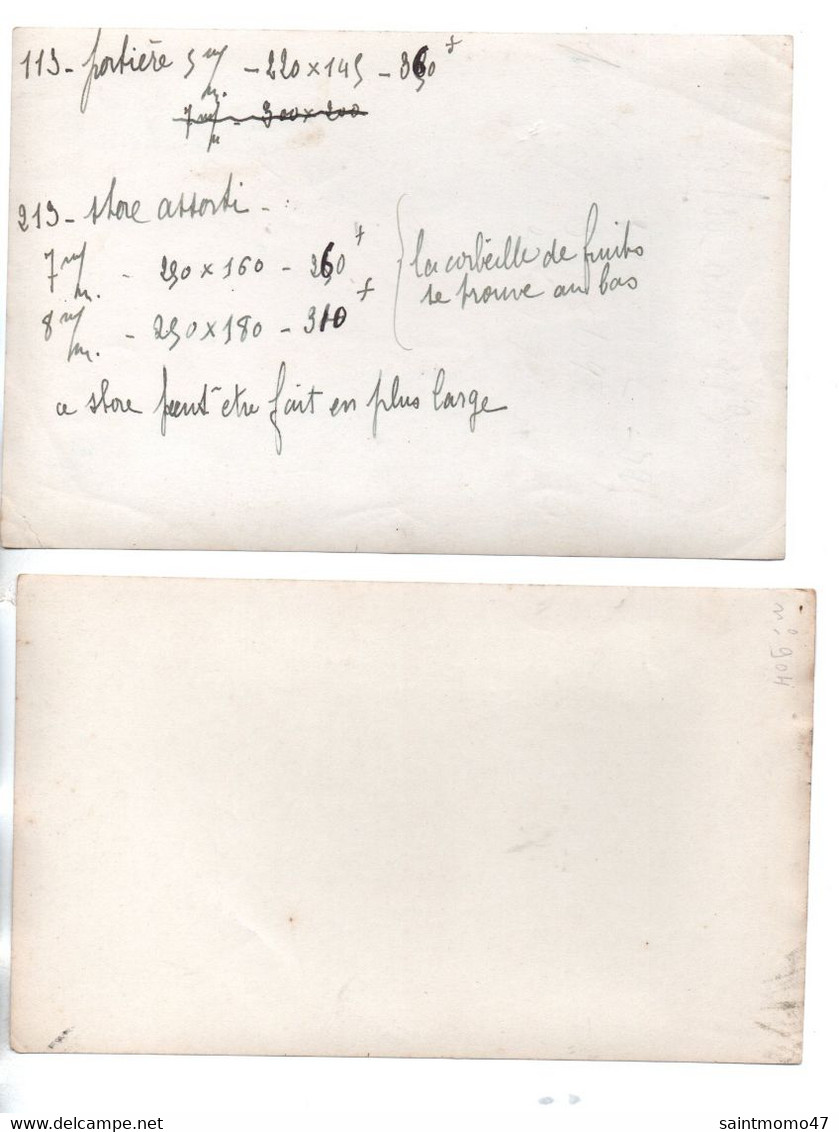 113 - portière 5 m/m. - 220 x 145 - 360 +
7 m/m - 300 x 200
213 - store assorti - .
7 m/m. - 250 x 160 - 260 +
8 m/m. - 250 x 180 - 310 +
la corbeille de fruits
se trouve au bas
ce store peut être fait en plus large
n° 904
saintmomo47